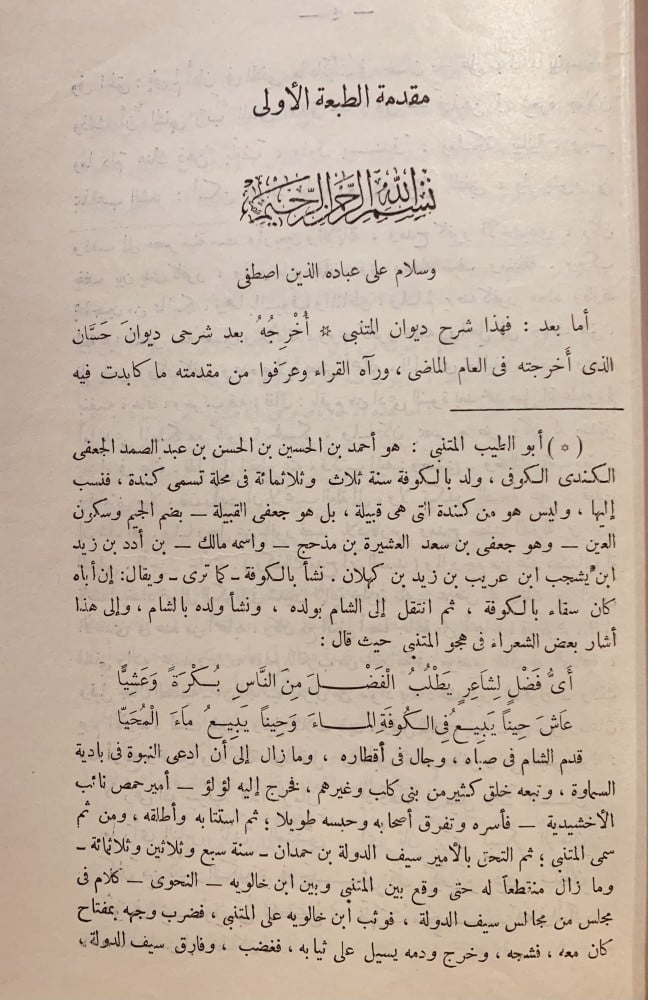 — ٤ —
مقدمة الطبعة الأولى
بسم الله الرحمن الرحيم
وسلام على عباده الذين اصطفى
أما بعد : فهذا شرح ديوان المتنبى * أُخْرِجُهُ بعد شرحى ديوانَ حَسَّان
الذى أَخرجته فى العام الماضى ، ورآه القراء وعرَفوا من مقدمته ما كابدت فيه
( * ) أبو الطيب المتنبى : هو أحمد بن الحسين بن الحسن بن عبد الصمد الجعفى
الكندى الكوفى ، ولد بالكوفة سنة ثلاث وثلاثمائة فى محلة تسمى كندة ، فنسب
إليها ، وليس هو من كندة التى هى قبيلة ، بل هو جعفى القبيلة — بضم الجيم وسكون
العين — وهو جعفى بن سعد العشيرة بن مذحج — واسمه مالك — بن أدد بن زيد
ابن يشجب ابن عريب بن زيد بن كهلان . نشأ بالكوفة — كما ترى — ويقال : إن أباه
كان سقاء بالكوفة ، ثم انتقل إلى الشام بولده ، ونشأ ولده بالشام ، وإلى هذا
أشار بعض الشعراء فى هجو المتنبى حيث قال :
أَىُّ فَضْلٍ لِشَاعِرٍ يَطْلُبُ الْفَضْـلَ مِنَ النَّاسِ بُكْرَةً وَعَشِيًّا
عَاشَ حِيناً يَبِيعُ فِى الكُوفَةِ المـاءَ وَحِيناً يَبِيعُ مَاءَ الْمُحَيَّا
قدم الشام فى صباه ، وجال فى أقطاره ، وما زال إلى أن ادعى النبوة فى بادية
السماوة ، وتبعه خلق كثير من بنى كلب وغيرهم ، فخرج إليه لؤلؤ — أمير حمص نائب
الأخشيدية — فأسره وتفرق أصحابه وحبسه طويلا ؛ ثم استتابه وأطلقه ، ومن ثم
سمى المتنبى ؛ ثم التحق بالأمير سيف الدولة بن حمدان — سنة سبع وثلاثين وثلاثمائة —
وما زال منقطعاً له حتى وقع بين المتنبى وبين ابن خالويه — النحوى — كلام فى
مجلس من مجالس سيف الدولة ، فوثب ابن خالويه على المتنبى ، فضرب وجهه بمفتاح
كان معه ، فشجه ، وخرج ودمه يسيل على ثيابه ، فغضب ، وفارق سيف الدولة ،